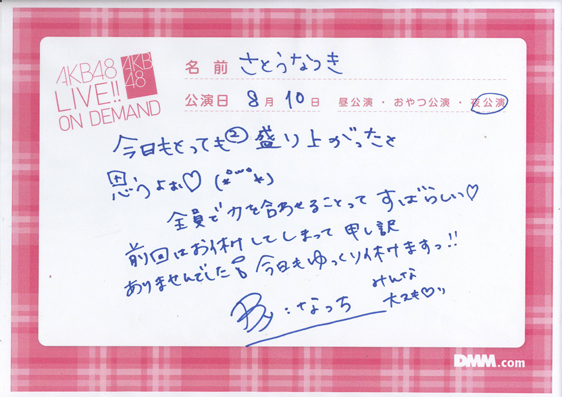 AKB48
LIVE!!
ON DEMAND
AKB
48
名前 さとうなつき
公演日 8月10日 昼公演・おやつ公演・夜公演
今日もとっても② 盛り上がったと
思うよぉ♡
全員で力を合わせることって すばらしい♡
前回はお休みしてしまって 申し訳
ありませんでした 今日もゆっくり休みますっ!!
By:なっち
みんな
大スキ♡ッ
DMM.com